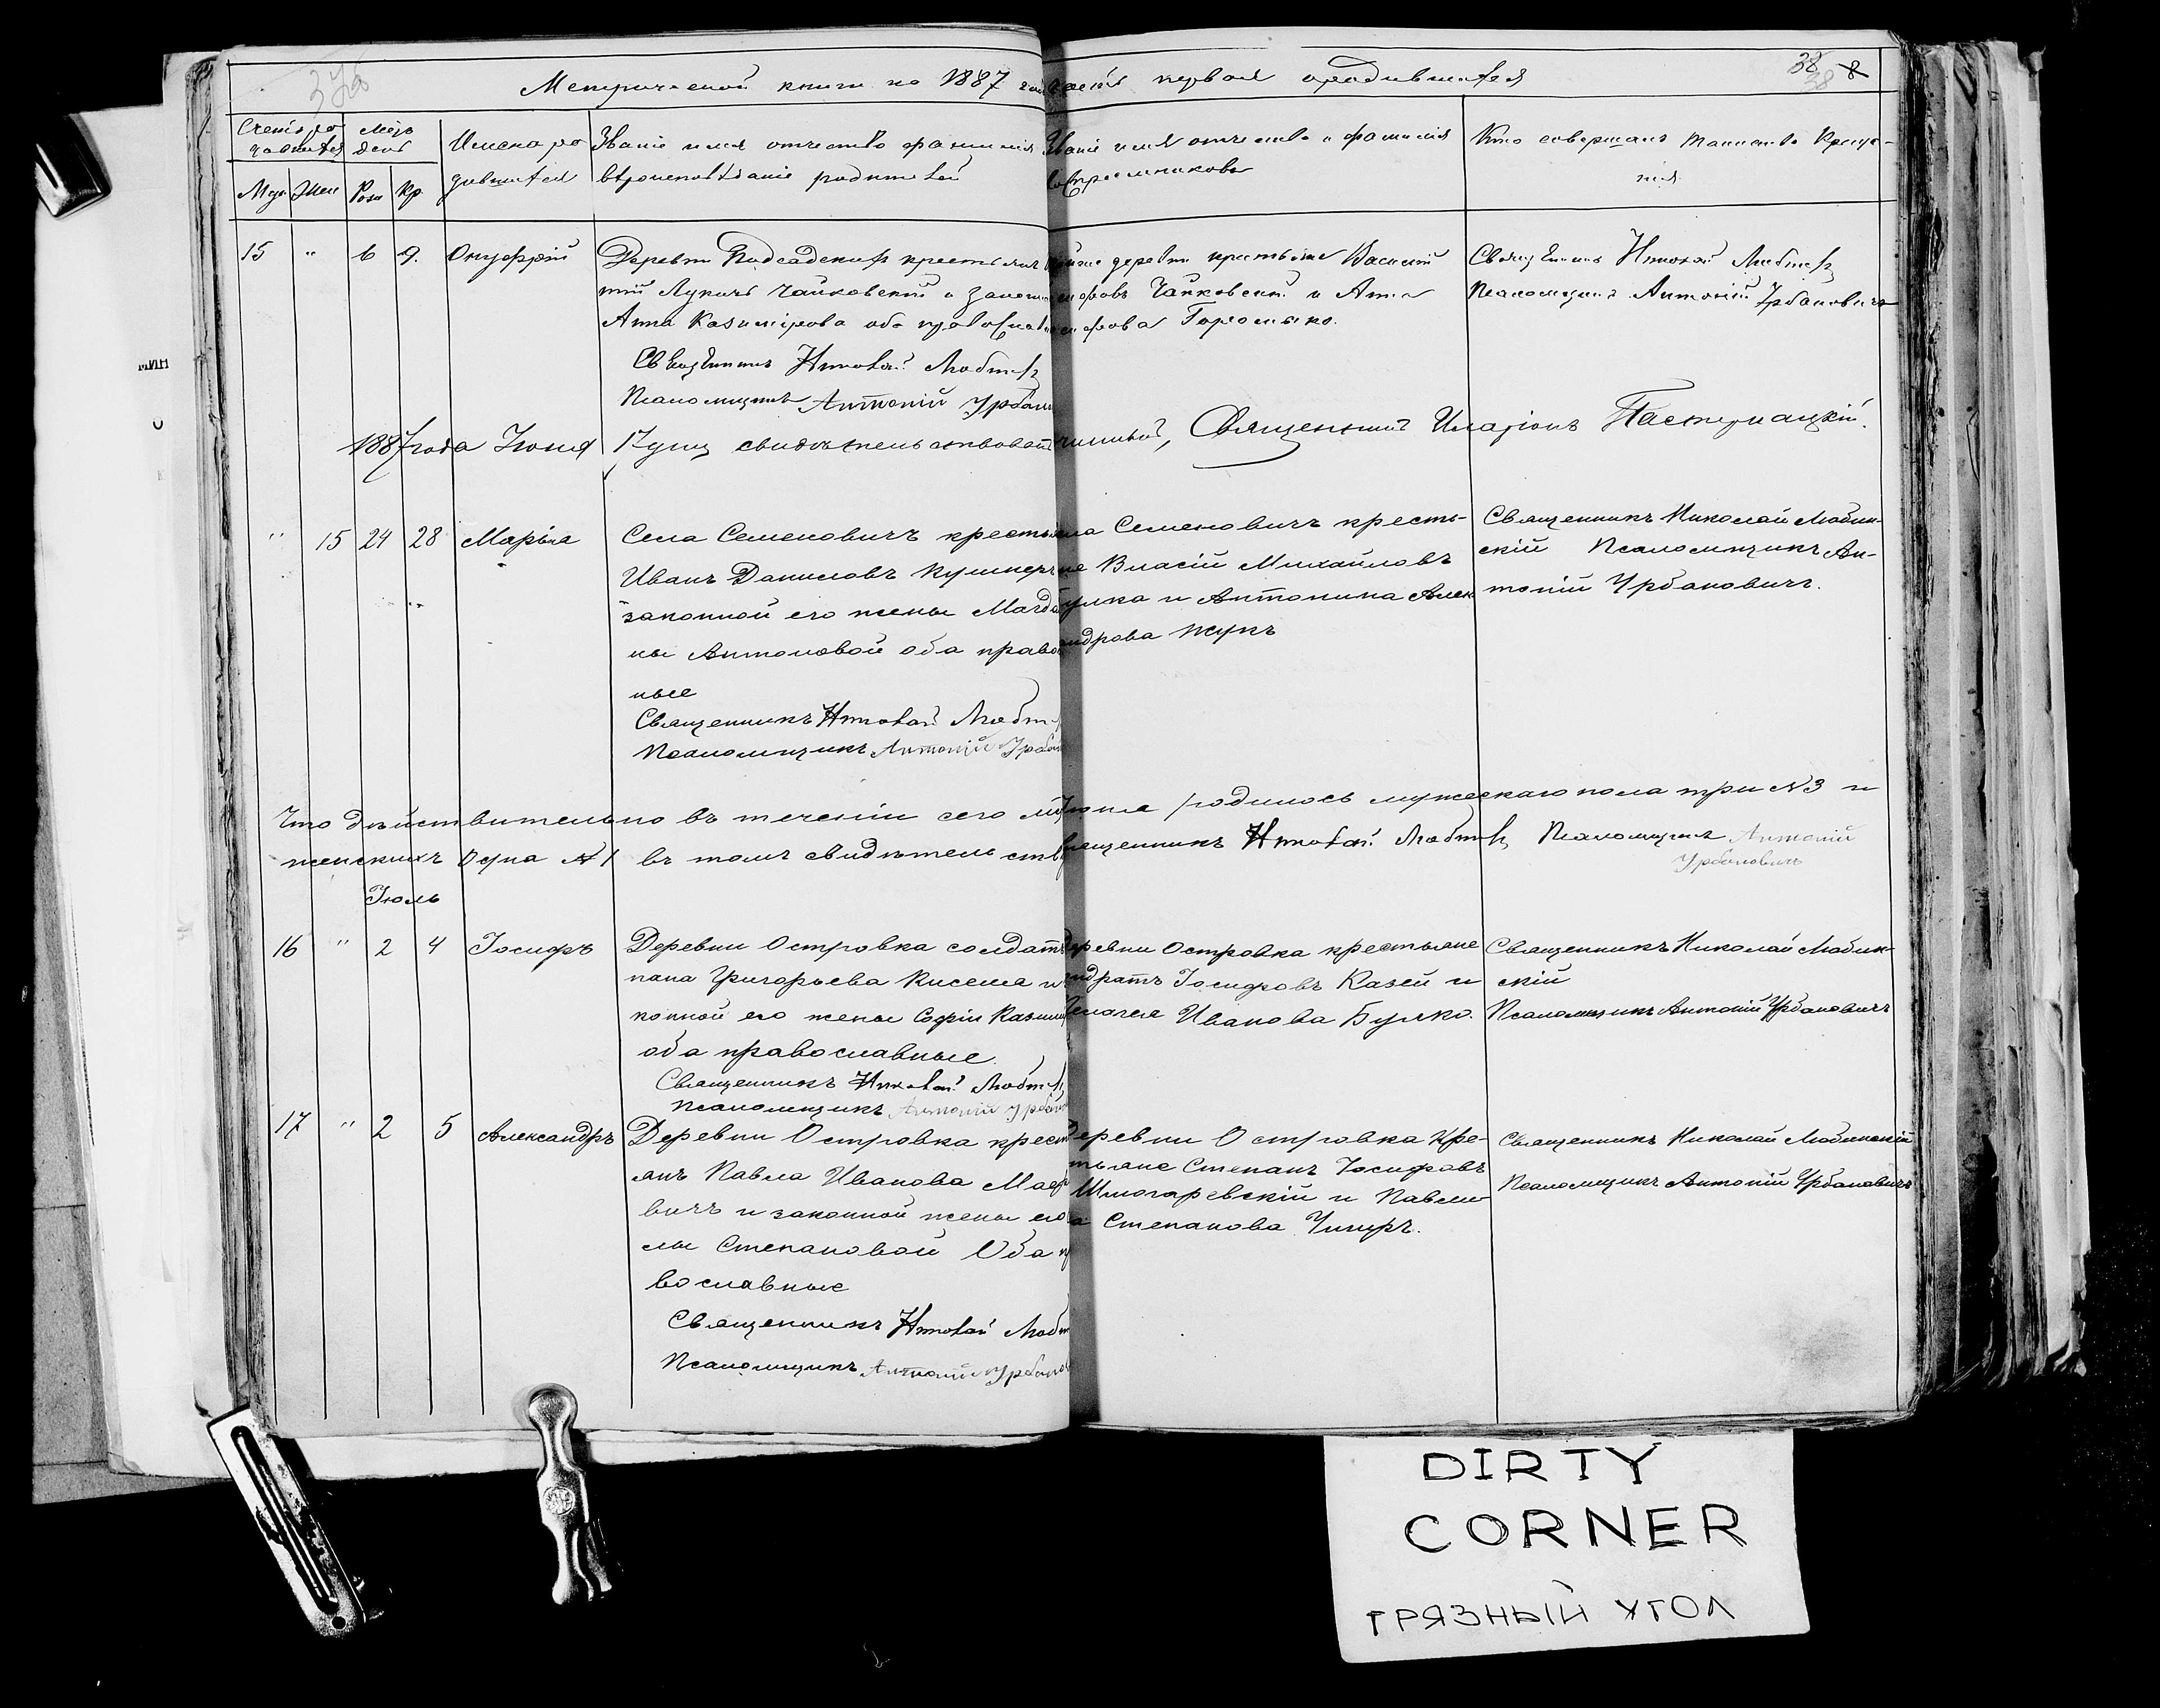 37об
38 8
38
Метрической книги на 1887 год часть первая о родившихся
Счетъ ро
дившихся
Муж Жен
Мѣс
день
Рожд Кр
Имена ро
дившихся
Званіе имя отчество фамилія
вѣроисповѣданіе родителей
Званіе имя отчество и фамилія
Воспріемниковъ
Кто совершалъ таинство Креще-
нія
15 " 6 9. Онуфрій
Деревни Подсадскихъ крестьянъ
тій Лукичъ Чайковскій и законн
Анна Казимірова оба православн
Священникъ Николай Любинск
Псаломщикъ Антоній Урбан
той же деревни крестьяне Василій
сифовъ Чайковскій и Анна
сифова Горомыко.
Священникъ Николай Любинск
Псаломщикъ Антоній Урбановичъ
1887 года Іюня 17 дня свидѣтельствовалъ Священникъ Иларіонъ Пастернацкій.
" 15 24 28 Марьяна
Села Семеновичъ крестьян
Иванъ Даниловъ Кушнеръ
законной его жены Магда
ны Антоновой оба право
ные
Священникъ Николай Любин
Псаломщикъ Антоній Урбан
ла Семеновичъ кресть-
не Власій Михайловъ
улка и Антонина Алек
андрова Жукъ
Священникъ Николай Любин-
скій Псаломщикъ Ан-
тоній Урбановичъ.
Что дѣйствительно въ теченіи сего мѣ Іюня родилось мужескаго пола три N3 и
женскихъ одна N1 въ томъ свидѣтельств ященникъ Николай Любинск Псаломщикъ Антоній
Урбановичъ
Іюль
16 " 2 4 Іосифъ
Деревни Островка солдат
пана Григорьева Кисела и
конной его жены Софіи Казим
оба православные
Священникъ Николай Любинск
Псаломщикъ Антоній Урбан
еревни Островка крестьяне
ндратъ Іосифовъ Казей и
Иванова Булко.
Священникъ Николай Любин-
скій
Псаломщикъ Антоній Урбановичъ
17 " 2 5 Александръ
Деревни Островка крест
янъ Павла Ивановa
вичъ и законной жены его
лы Степановой Оба п
вославные
Священникъ Николай Люби
Псаломщикъ Антоній Урбано
еревни Островка Кре-
тьяне Степанъ Іосифовъ
Шмогаревскій и Павли-
а Степанова
Священникъ Николай Любинскій
Псаломщикъ Антоній Урбановичъ
DIRTY
CORNER
ГРЯЗНЫЙ УГОЛ